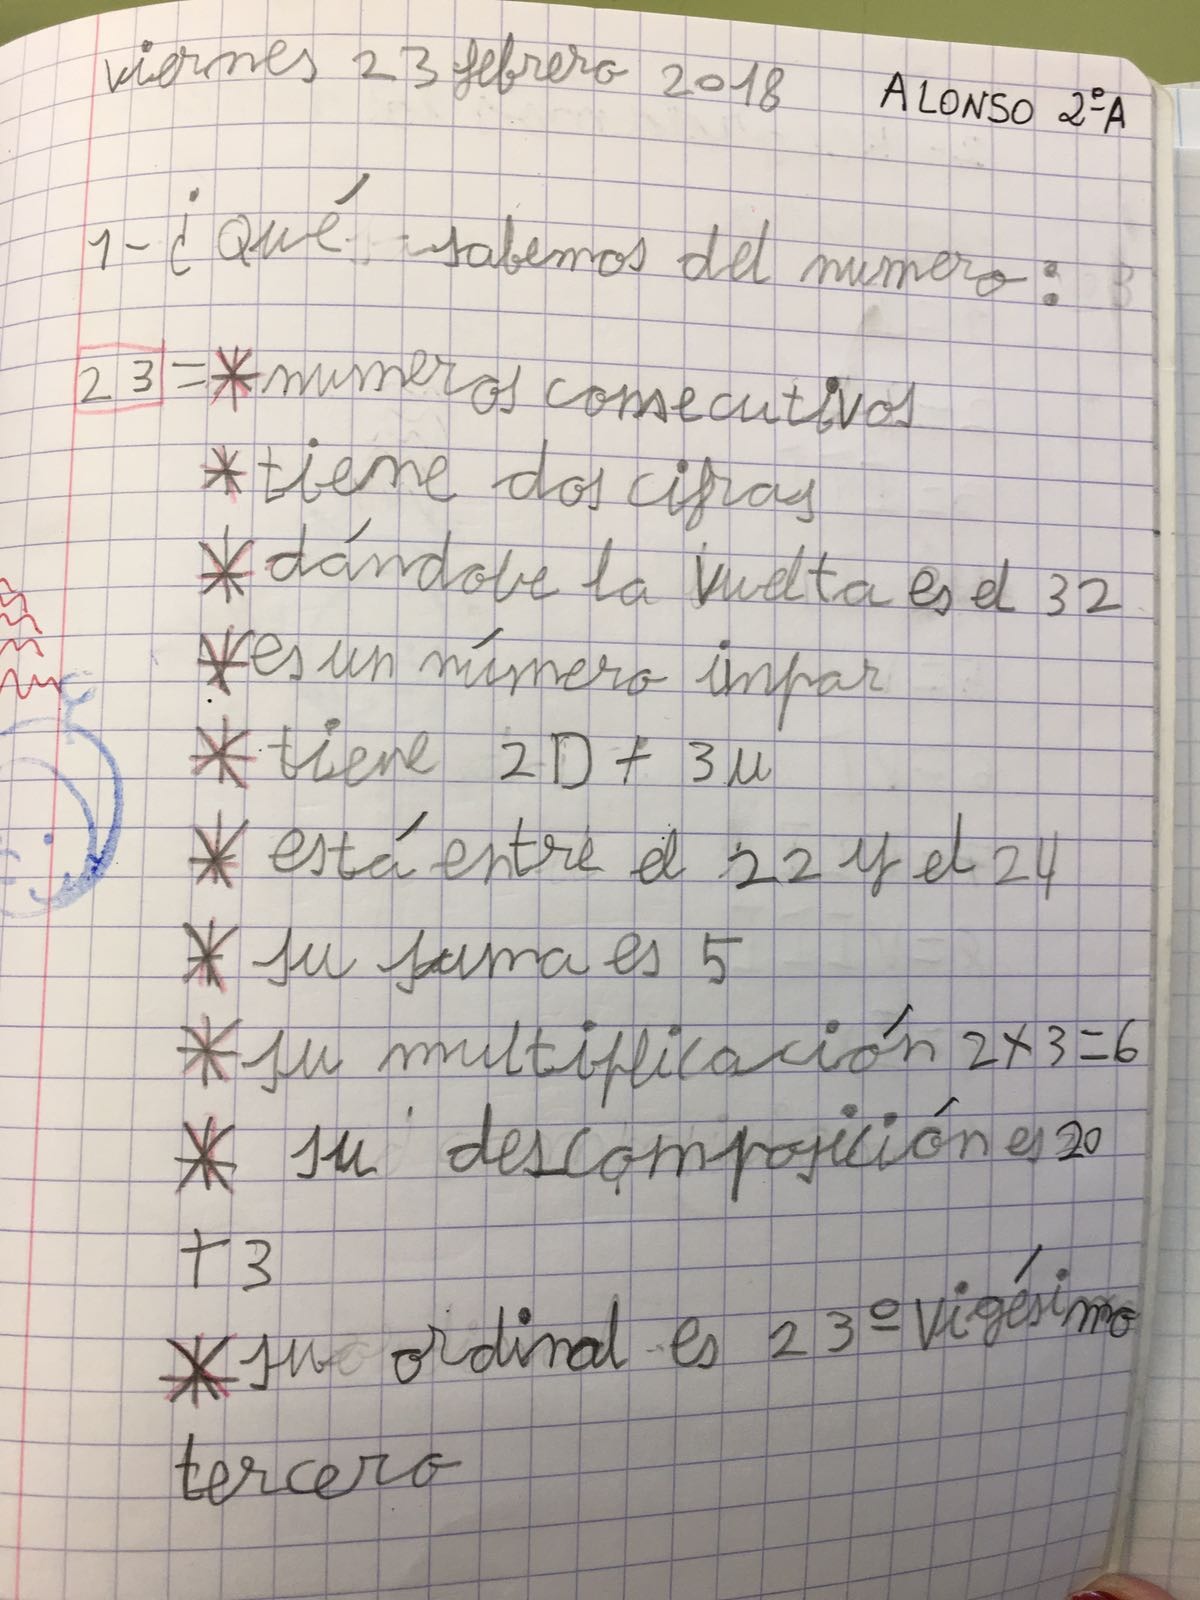 viernes 23 febrero 2018 ALONSO 2ºA
1-¿Qué sabemos del numero:
23=*numeros consecutivos
*tiene dos cifras
*dándole la vuelta es el 32
*es un número impar
*tiene 2D+3u
*está entre el 22 y el 24
*su suma es 5
*su multiplicación 2x3=6
*su descomposición es 20
+3
*su ordinal es 23º vigésimo
tercero